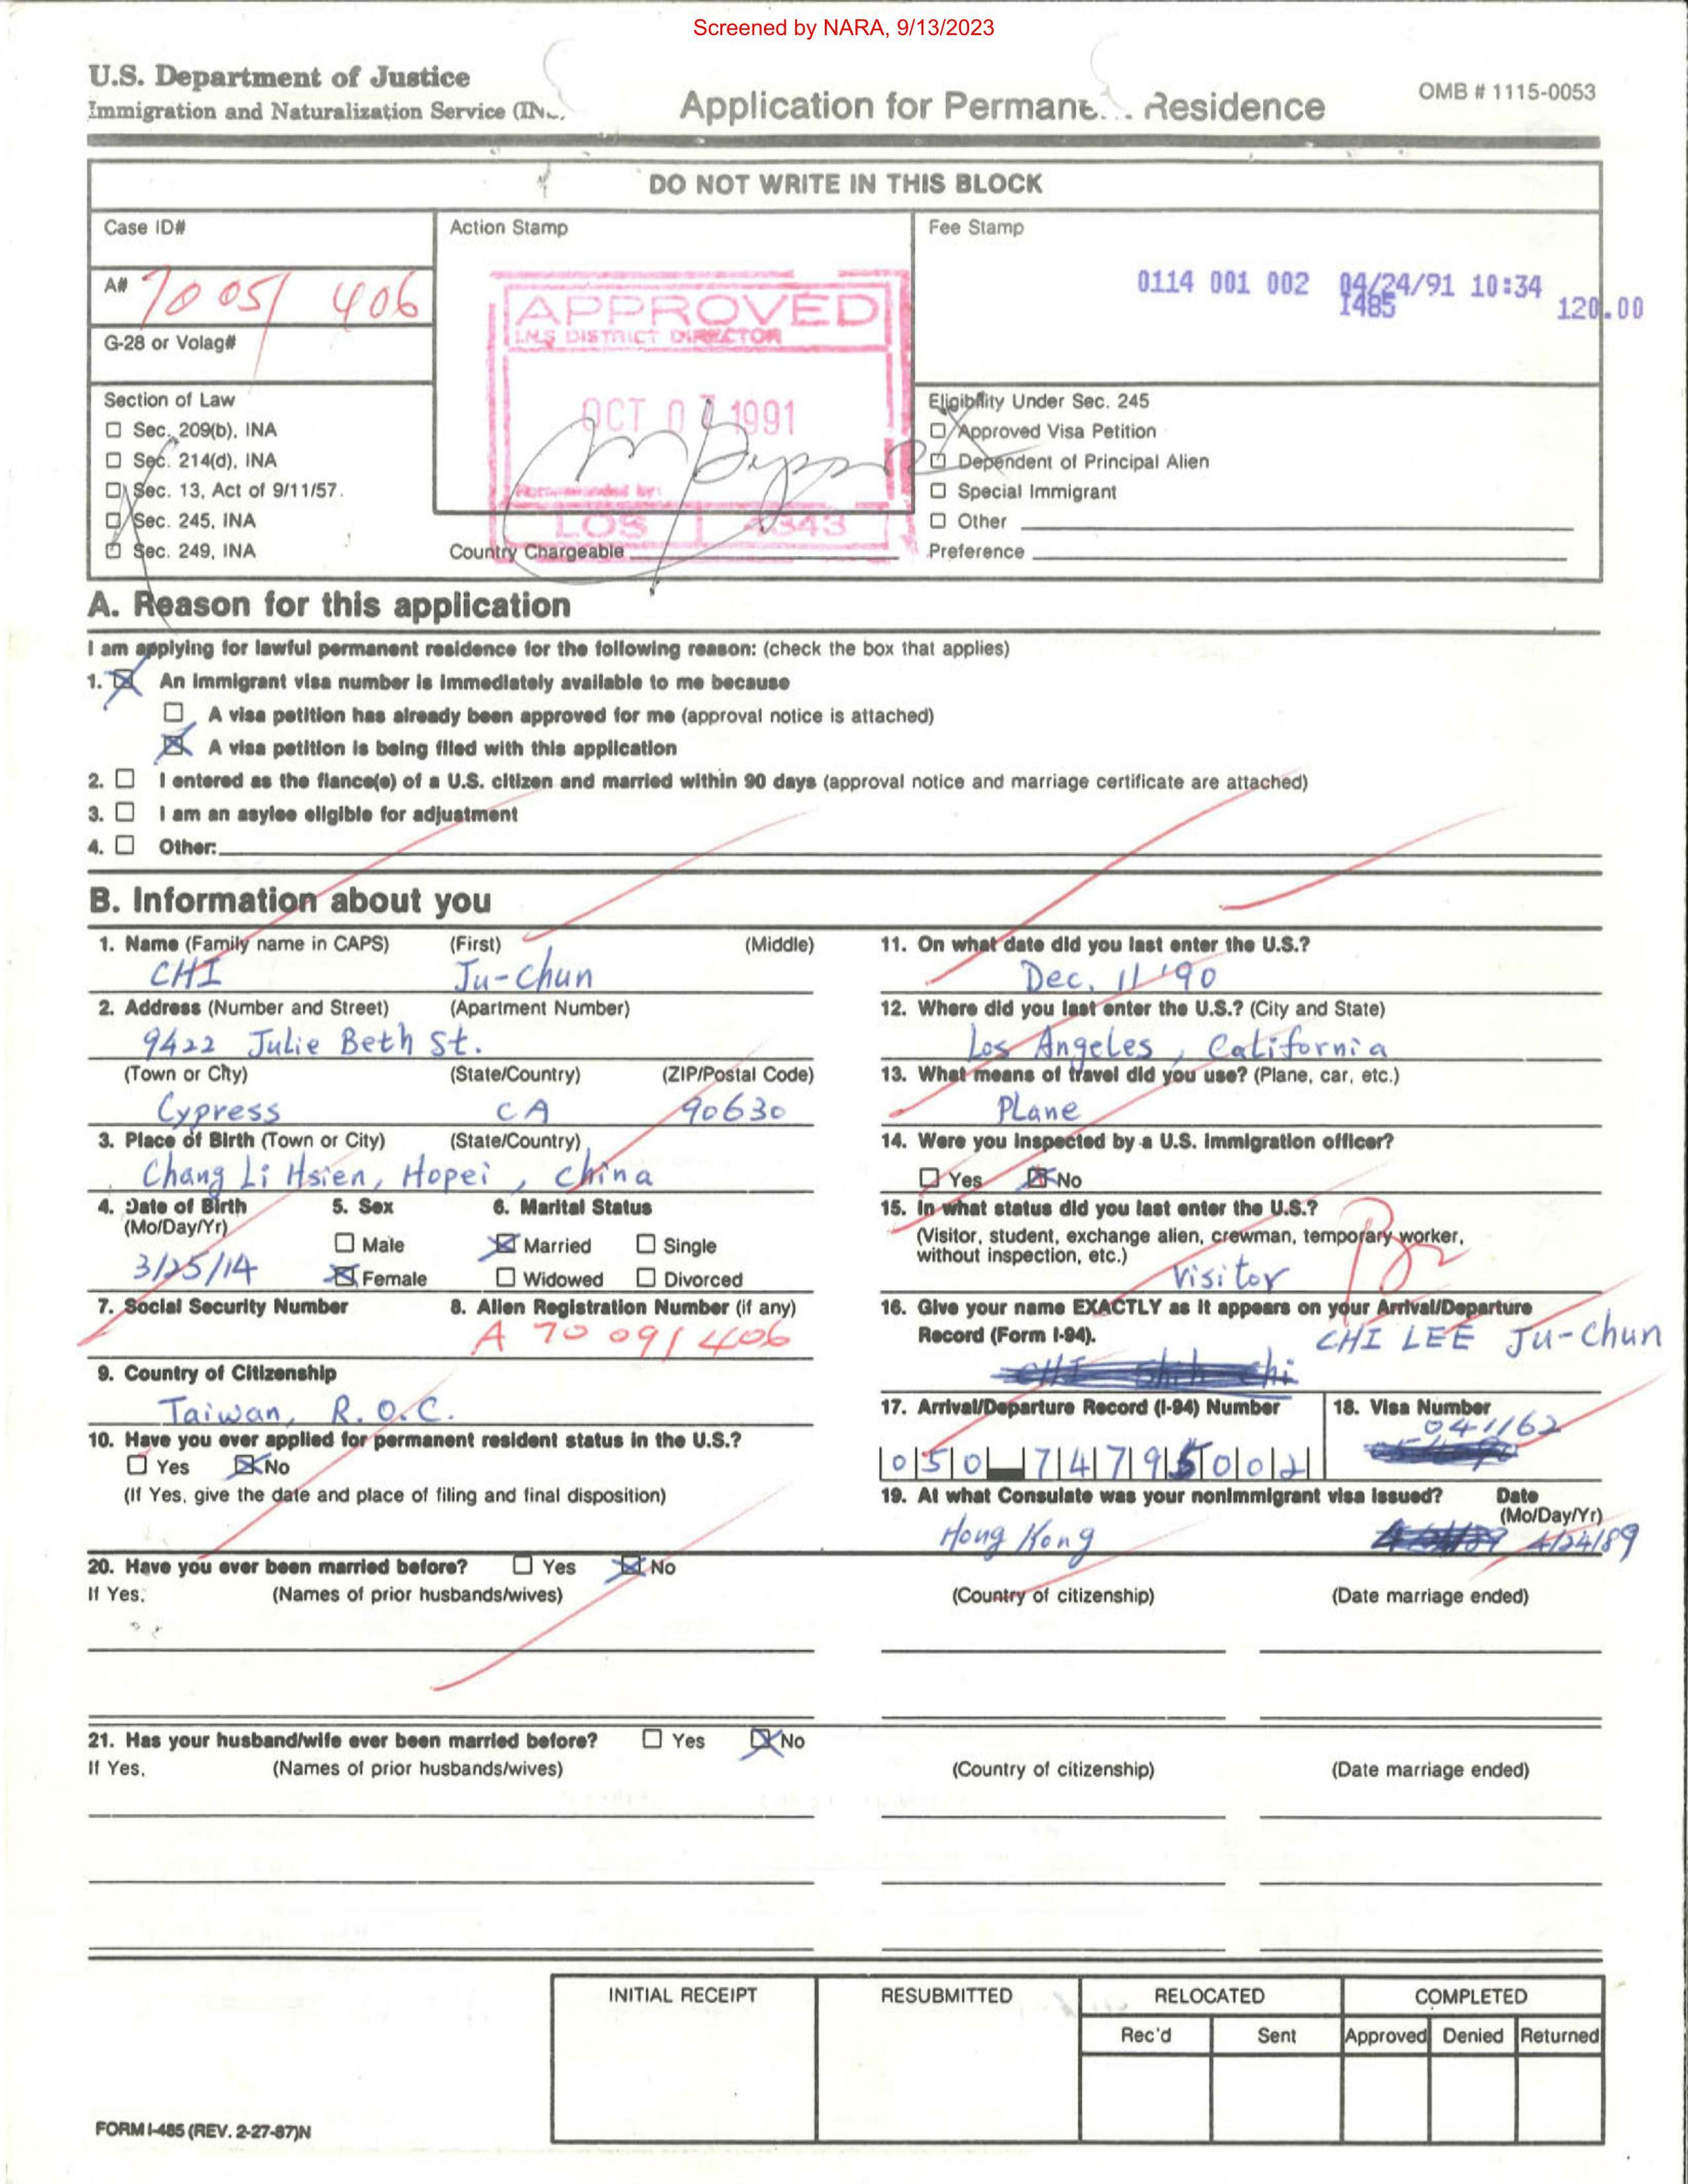 Screened by NARA, 9/13/2023
U.S. Department of Justice
Immigration and Naturalization Service
Application for Permane Residence
OMB # 1115-0053
DO NOT WRITE IN THIS BLOCK
Case ID#
Action Stamp
Fee Stamp
0114 001 002 04/24/91 10:34
I485
120.00
A#
406
G-28 or Volag#
APPROVED
I.N.S DISTRICT DIRECTOR
OCT 1991
Recommended by:
LOS 4343
Country Chargeable
Section of Law
☐ Sec. 209(b), INA
☐ Sec. 214(d), INA
☐ Sec. 13, Act of 9/11/57.
☐ Sec. 245, INA
☐ Sec. 249, INA
Eligibility Under Sec. 245
☐ Approved Visa Petition
☐ Dependent of Principal Alien
☐ Special Immigrant
☐ Other
Preference
A. Reason for this application
I am applying for lawful permanent residence for the following reason: (check the box that applies)
1. ☒ An immigrant visa number is immediately available to me because
☐ A visa petition has already been approved for me (approval notice is attached)
☒ A visa petition is being filed with this application
2. ☐ I entered as the fiance(e) of a U.S. citizen and married within 90 days (approval notice and marriage certificate are attached)
3. ☐ I am an asylee eligible for adjustment
4. ☐ Other:
B. Information about you
1. Name (Family name in CAPS) (First) (Middle)
CHI Ju-chun
2. Address (Number and Street) (Apartment Number)
9422 Julie Beth St.
(Town or City) (State/Country) (ZIP/Postal Code)
Cypress CA 90630
3. Place of Birth (Town or City) (State/Country)
Chang Li Hsien, Hopei, China
4. Date of Birth 5. Sex 6. Marital Status
(Mo/Day/Yr)
☐ Male ☒ Married ☐ Single
3/25/14
☒ Female ☐ Widowed ☐ Divorced
7. Social Security Number 8. Alien Registration Number (if any)
A 70 091 406
9. Country of Citizenship
Taiwan, R.O.C.
10. Have you ever applied for permanent resident status in the U.S.?
☐ Yes ☒ No
(If Yes, give the date and place of filing and final disposition)
11. On what date did you last enter the U.S.?
Dec. 11 '90
12. Where did you last enter the U.S.? (City and State)
Los Angeles, California
13. What means of travel did you use? (Plane, car, etc.)
Plane
14. Were you inspected by a U.S. immigration officer?
☐ Yes ☒ No
15. In what status did you last enter the U.S.?
(Visitor, student, exchange alien, crewman, temporary worker,
without inspection, etc.)
Visitor
B2
16. Give your name EXACTLY as it appears on your Arrival/Departure
Record (Form I-94).
CHI LEE Ju-chun
17. Arrival/Departure Record (I-94) Number 18. Visa Number
050 74795002
041162
19. At what Consulate was your nonimmigrant visa issued? Date
(Mo/Day/Yr)
Hong Kong 4/24/89
20. Have you ever been married before? ☐ Yes ☒ No
If Yes, (Names of prior husbands/wives) (Country of citizenship) (Date marriage ended)
21. Has your husband/wife ever been married before? ☐ Yes ☒ No
If Yes, (Names of prior husbands/wives) (Country of citizenship) (Date marriage ended)
INITIAL RECEIPT RESUBMITTED RELOCATED COMPLETED
Rec'd Sent Approved Denied Returned
FORM I-485 (REV. 2-27-87)N